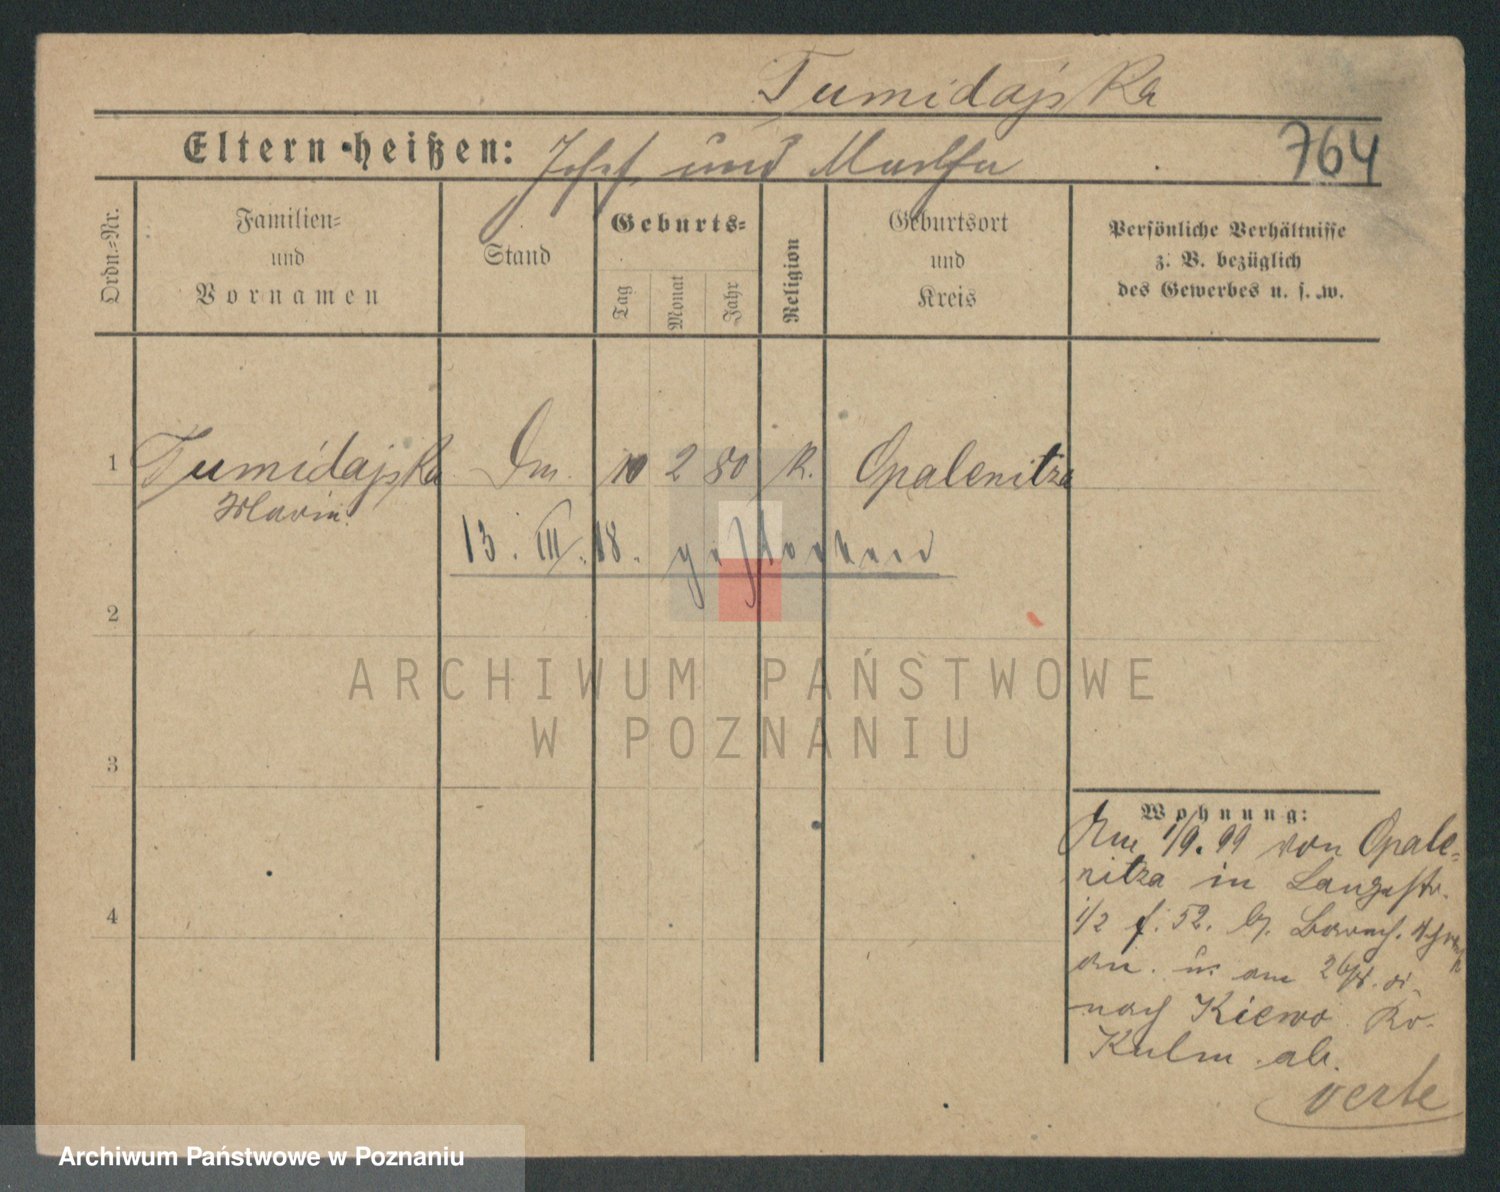 Tumidajska
Eltern heißen: Josef und Martha
764
Ordn.-Nr.
Familien-
und
Vornamen
Stand
Geburts-
Tag
Monat
Jahr
Religion
Geburtsort
und
Kreis
Persönliche Verhältnisse
z. B. bezüglich
des Gewerbes u. s. w.
1 Tumidajska Dm. 10 2 80 K. Opalenitza
Maria
13. III. 18. gestorben
2
ARCHIWUM PAŃSTWOWE
W POZNANIU
3
Wohnung:
Am 1/9. 99 von Opale-
nitza in Langestr.
1/2 f. 52. b.
an. u. am
nach Kiewo Kr.
Kulm ab.
4
verte
Archiwum Państwowe w Poznaniu